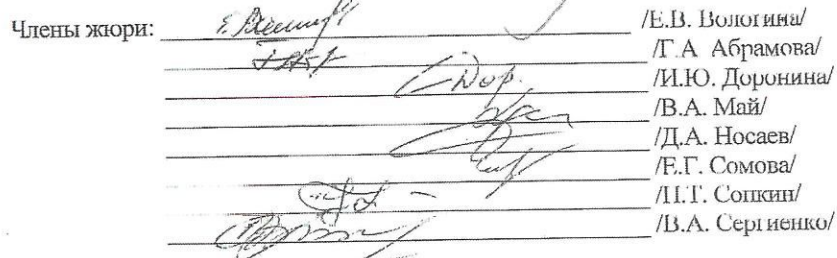 Члены жюри: /Е.В. Вологина/
/Г.А Абрамова/
Дор. /И.Ю. Доронина/
/В.А. Май/
/Д.А. Носаев/
/Е.Г. Сомова/
/П.Т. Сопкин/
/В.А. Сергиенко/